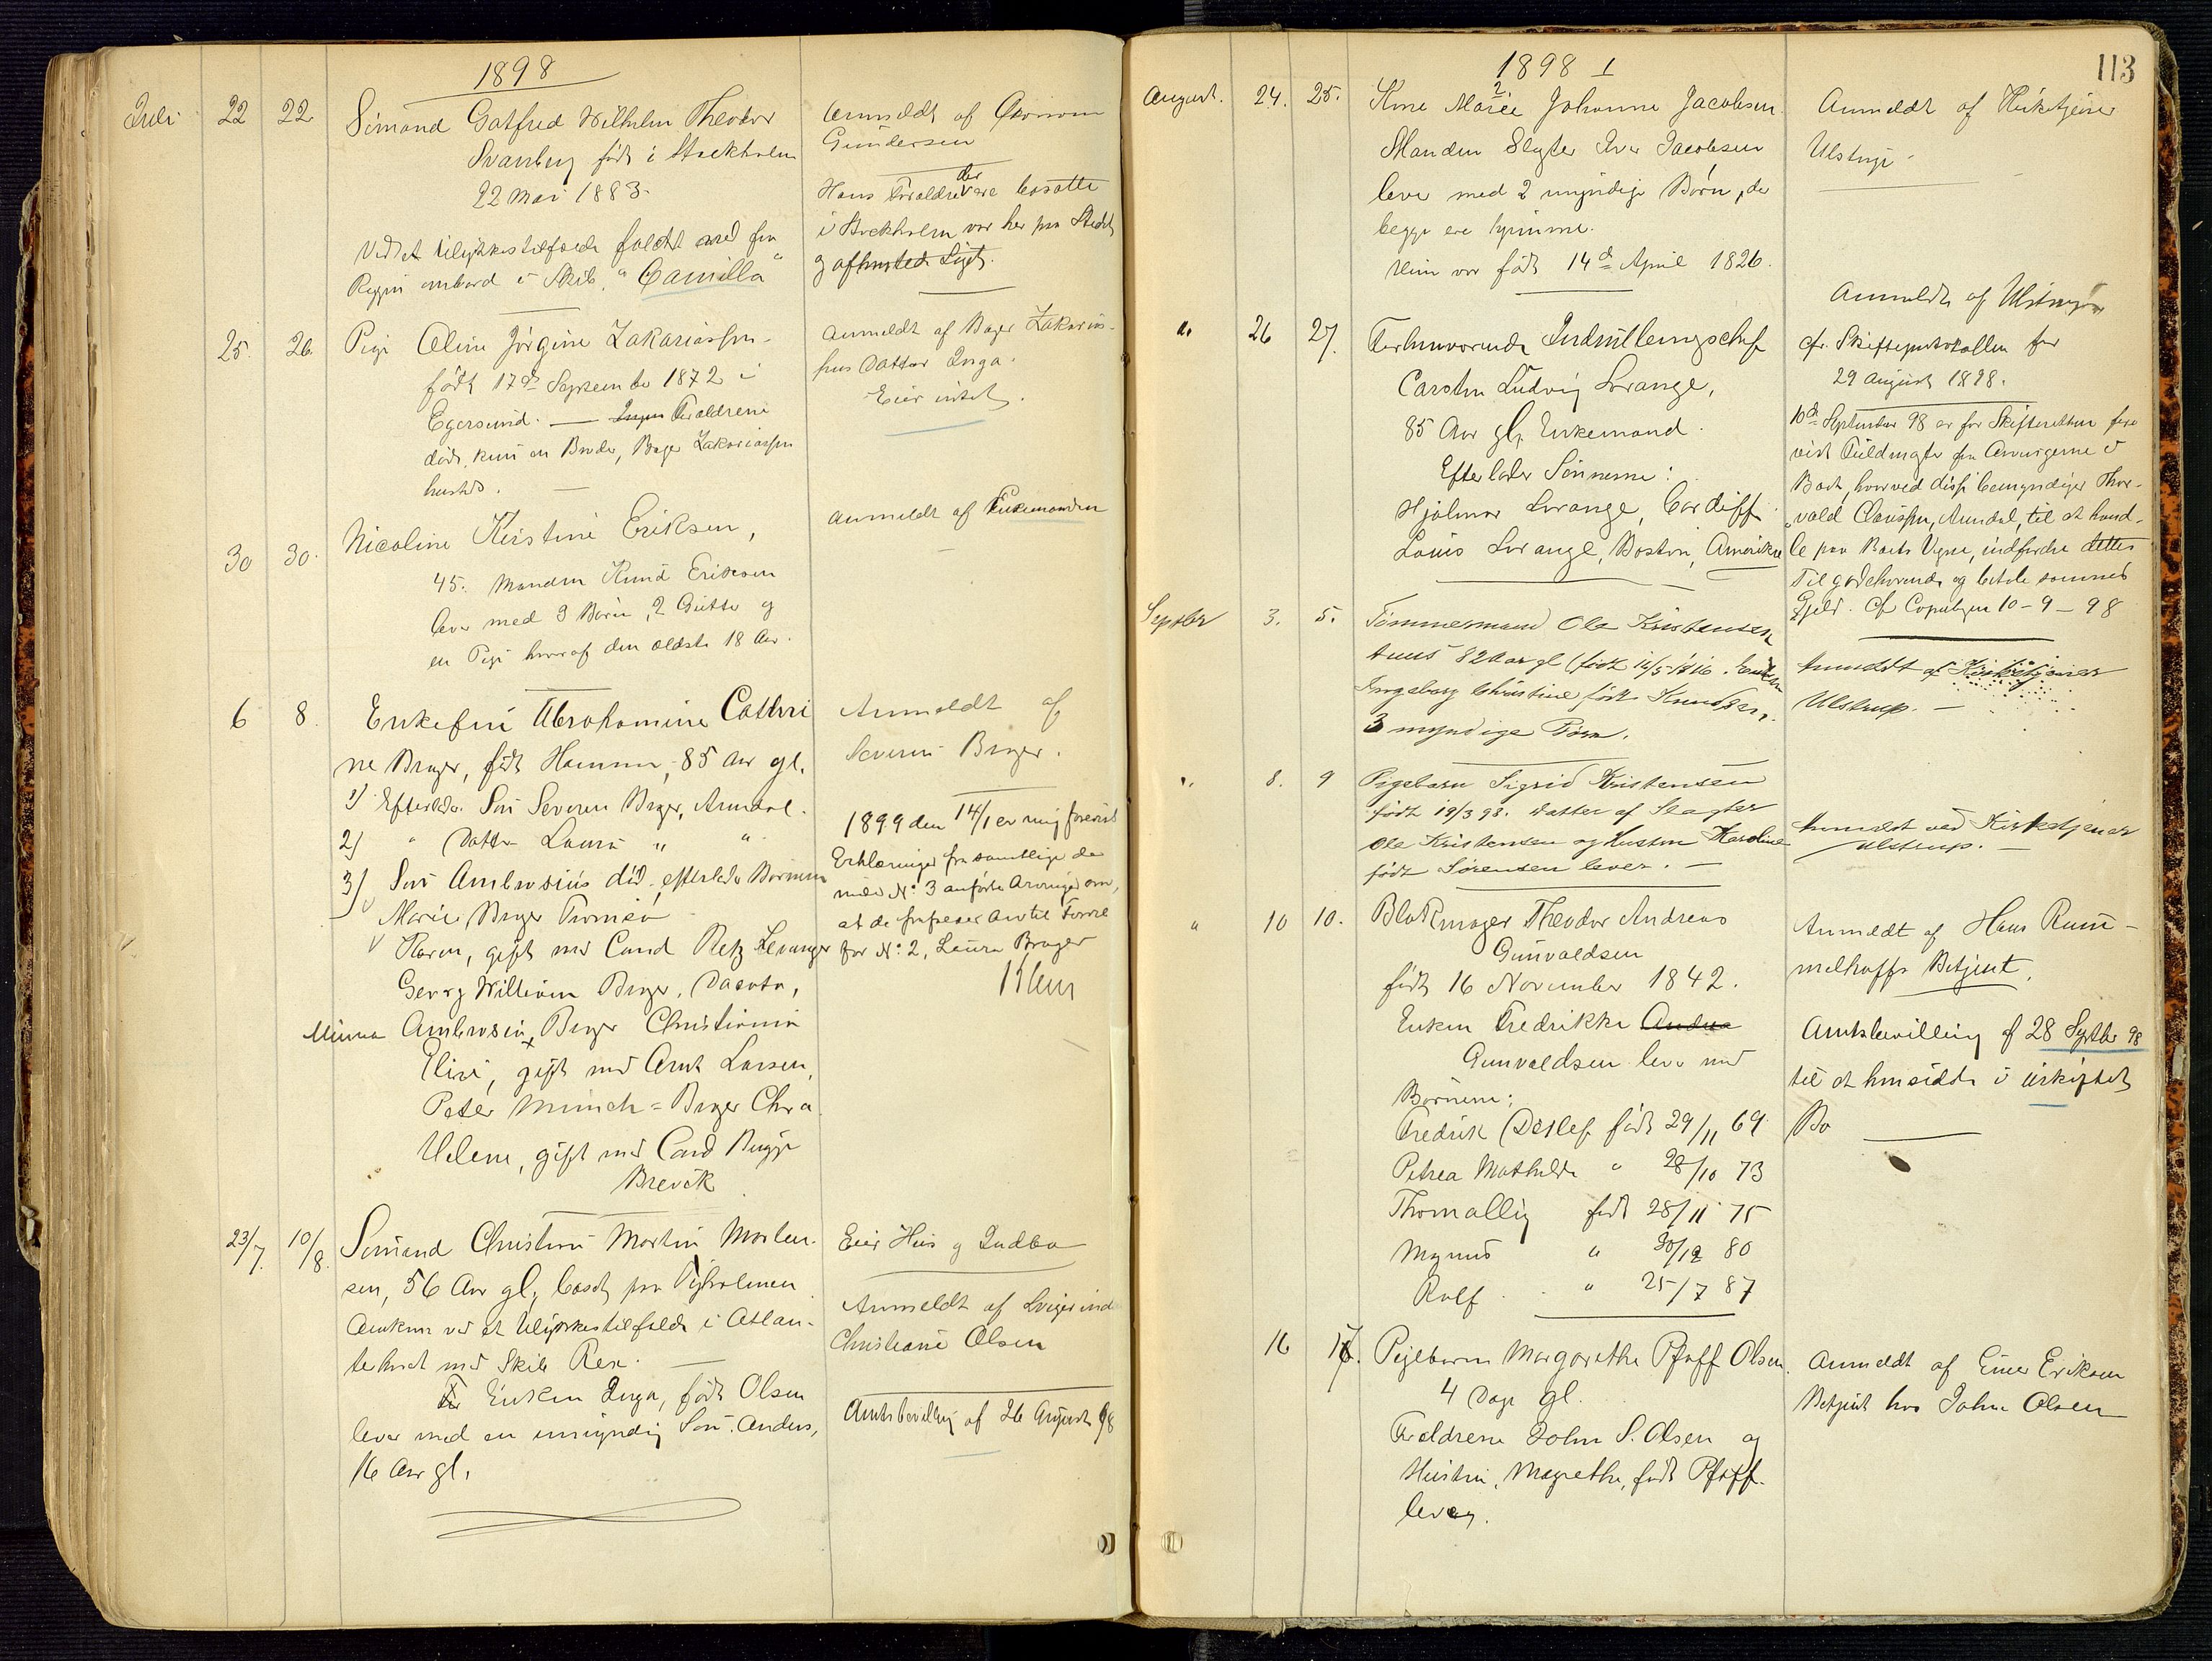 1898
Juli 22 22 Sömand Gotfred Wilhelm Theodor
Svanberg født i Stockholm
22 Mai 1883.
Ved et Ulykkestilfælde faldt ned fra
Riggen ombord i Skib "Camilla"
Anmeldt af
Gundersen
Hans Forældre der ere bosatte
i Stockholm var her paa Stedet
og afhentede Liget.
25. 26. Pige Oline Jörgine Zakariassen
født 17de September 1872 i
Egersund. — Ingen Forældrene
døde, kun en Broder, Bager Zakariassen
hersteds.
Anmeldt af Bager Zakarias-
sens Datter Inga.
Eier intet.
30 30. Nicoline Kirstine Eriksen,
45. Manden Knud Eriksen
lever med 3 Børn, 2 Gutter og
en Pige hvoraf den ældste 18 Aar.
Anmeldt af Enkemanden
6 8. Enkefru Abrahamine Cathri
ne Brager, født Hammer, 85 Aar gl.
1) Efterlader Søn Severin Brager, Arendal.
2) " Datter Laura " "
3) Søn Ambrosius død, efterlader Børnene
Marie Brager Tromsø
Karen, gift med Cand Retz Levanger
Georg William Brager, Dacota,
Minna Ambrosia Brager Christiania
Elise, gift med Arnt Larsen,
Peter Münch-Brager Chra
Helene, gift med Cand Bugge
Brevik
Anmeldt af
Severin Brager.
1899 den 14/1 er mig forevist
Erklæringer fra samtlige de
under No: 3 anførte Arvinger om,
at de frafalder Arv til Fordel
for No: 2, Laura Brager
Klem
23/7. 10/8. Sömand Christen Martin Morten-
sen, 56 Aar gl, bosat paa Tyholmen
Omkom ved et Ulykkestilfælde i Atlan-
terhavet med Skib Rex.
Enken Inga, født Olsen
lever med en umyndig Søn Anders,
16 Aar gl.
Eier Hus og Indbo
Anmeldt af Svigerinde
Christiane Olsen
Amtsbevilling af 26 August 98
1898 1
113
August. 24. 25. Kone Marie Johanne Jacobsen.
Manden Slagter Iver Jacobsen
lever med 2 umyndige Børn, de
begge ere hjemme.
Hun var født 14de April 1826.
Anmeldt af Kirketjener
Ulstrup.
" 26 27. Forhenværende Indrulleringschef
Carsten Ludvig Lorange,
85 Aar gl, Enkemand.
Efterlader Sønnerne:
Hjalmar Lorange, Cardiff
Louis Lorange, Boston, Amerika
Anmeldt af Ulstrup
cfr. Skifteprotokollen for
29 August 1898.
10de September 98 er for Skifteretten fore
vist Fuldmagter fra Arvingerne i
Boet, hvorved disse bemyndiger Thor-
vald Clausen, Arendal, til at hand-
le paa Boets Vegne, indfordre dettes
Tilgodehavende og betale sammes
Gjeld. Cf Copibogen 10-9-98
Septbr 3. 5. Tømmermand Ole Kristensen
82 Aar gl (født 16/5 1816. Enken
Ingeborg Christine født Knudsen,
3 myndige Børn.
Anmeldt af Kirketjener
Ulstrup. —
". 8. 9 Pigebarn Sigrid Kristensen
født 19/3 98. Datter af Slagter
Ole Kristensen og Hustru Karoline
født Sørensen lever. —
Anmeldt ved Kirketjener
Ulstrup. —
" 10 10. Blokmager Theodor Andreas
Gunvaldsen
født 16 November 1842.
Enken Fredrikke Andrea
Gunvaldsen lever med
Børnene:
Fredrik Detlef født 29/11 69
Petrea Mathilde " 28/10 73
Thomallig født 28/11 75
Magnus " 30/12 80
Rolf " 25/7 87
Anmeldt af Hans Rum-
melhoffs Betjent.
Amtsbevilling af 28 Septbr 98
til at hensidde i uskiftet
Bo
16 17. Pigebarn Margarethe Pfaff Olsen.
4 Dage gl.
Forældrene John S. Olsen og
Hustru, Magrethe, født Pfaff.
lever.
Anmeldt af Einer Eriksen
Betjent hos John Olsen